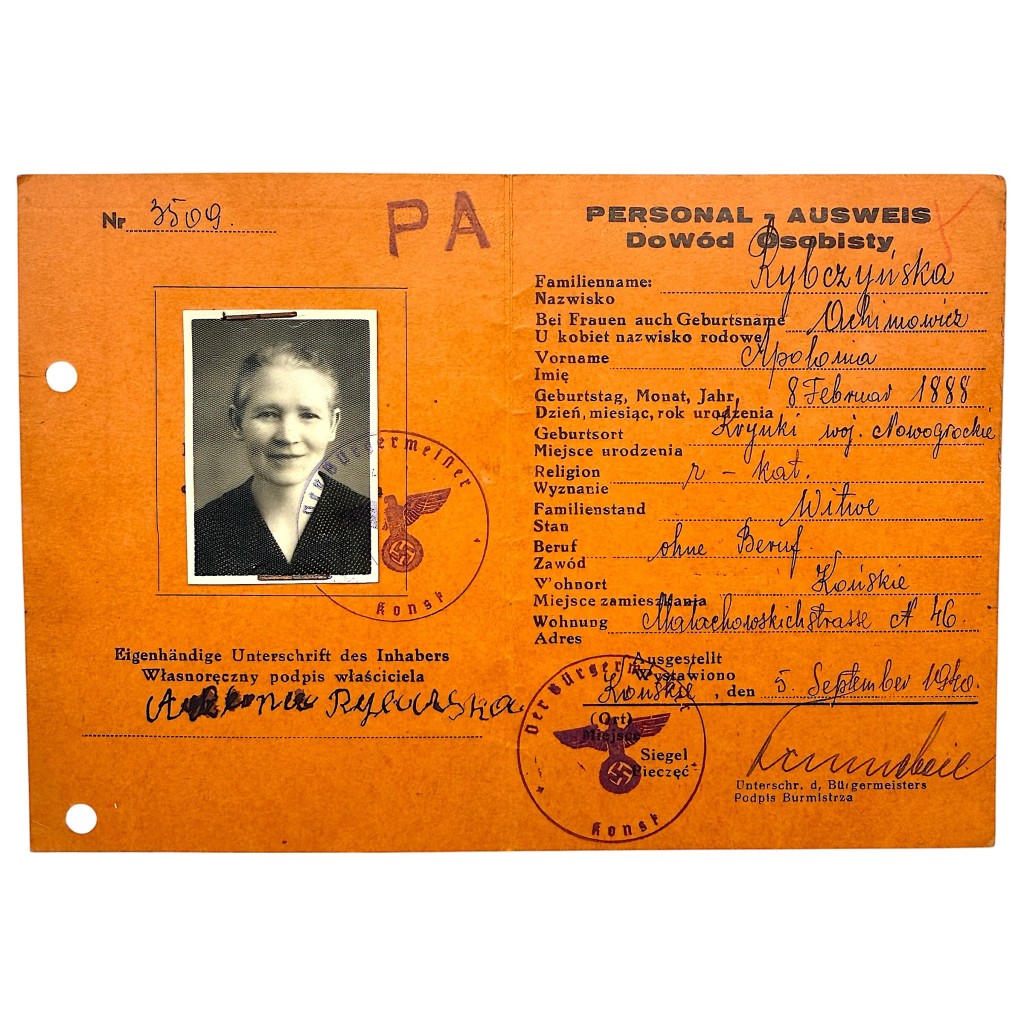 Nr 3509.
PA
PERSONAL - AUSWEIS
DoWód Osobisty
Familienname: Rybczyńska
Nazwisko
Bei Frauen auch Geburtsname Achimowicz
U kobiet nazwisko rodowe
Vorname Apolonia
Imię
Geburtstag, Monat, Jahr 8 Februar 1888
Dzień, miesiąc, rok urodzenia
Geburtsort Krynki woj. Nowogrockie
Miejsce urodzenia
Religion r - kat.
Wyznanie
Familienstand Witwe
Stan
Beruf ohne Beruf.
Zawód
Wohnort Końskie
Miejsce zamieszkania
Wohnung Małachowskichstrasse N 46.
Adres
Ausgestellt
Wystawiono
Końskie, den 5. September 1940.
(Ort)
Miejsce
Siegel
Pieczęć
Unterschr. d, Bürgermeisters
Podpis Burmistrza
Der Bürgermeister
Konsk
Eigenhändige Unterschrift des Inhabers
Własnoręczny podpis właściciela
Der Bürgermeister
Konsk